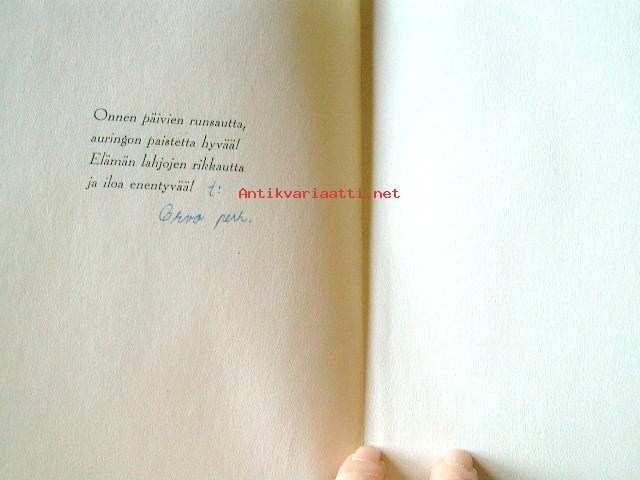 Onnen päivien runsautta,
auringon paistetta hyvää!
Elämän lahjojen rikkautta
ja iloa enentyvää! t:
Antikvariaatti.net
Orvo perh.